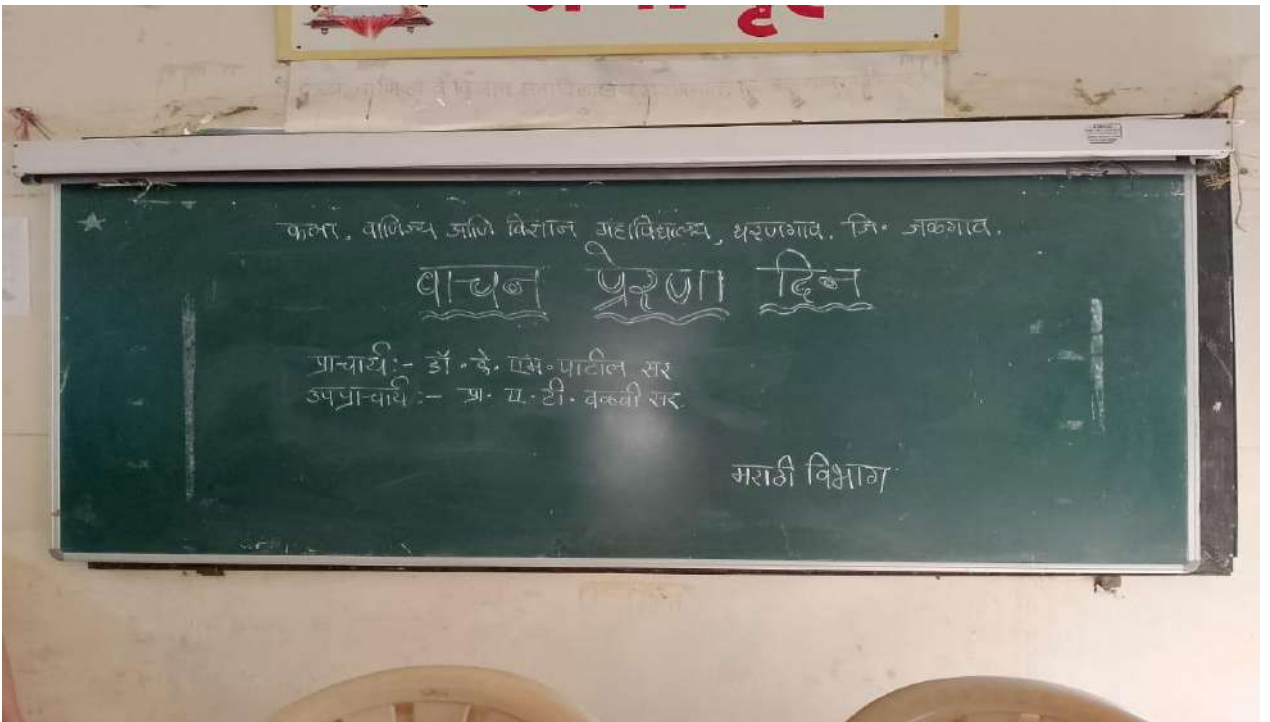 कला, वाणिज्य आणि विज्ञान महाविद्यालय, धरणगाव. जि. जळगाव.
वाचन प्रेरणा दिन
प्राचार्य:- डॉ. के. एम. पाटील सर
उपप्राचार्य:- प्रा. ए. टी. वळवी सर
मराठी विभाग